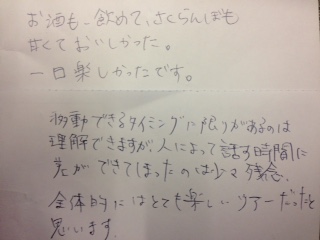 お酒も、飲めて、さくらんぼも
甘くておいしかった。
一日楽しかったです。
移動できるタイミングに限りがあるのは
理解できますが人によって話す時間に
差ができてしまったのは少々残念。
全体的にはとても楽しいツアーだったと
思います。